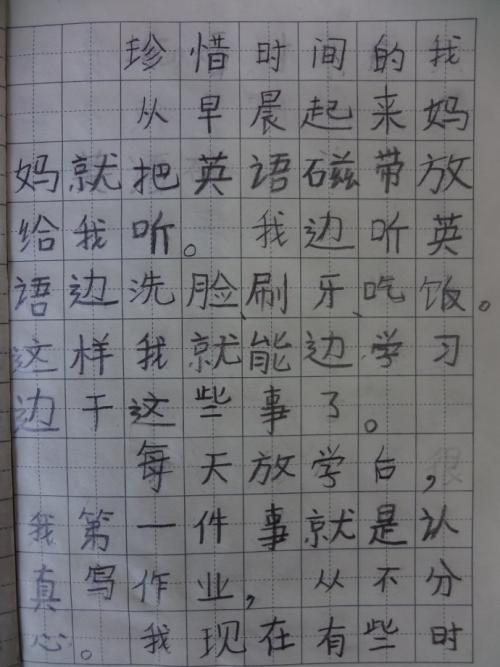 珍惜时间的我
从早晨起来妈
妈就把英语磁带放
给我听。我边听英
语边洗脸、刷牙、吃饭。
这样我就能边学习
边干这些事了。
每天放学后，
我第一件事就是认
真写作业，从不分
心。我现在有些时